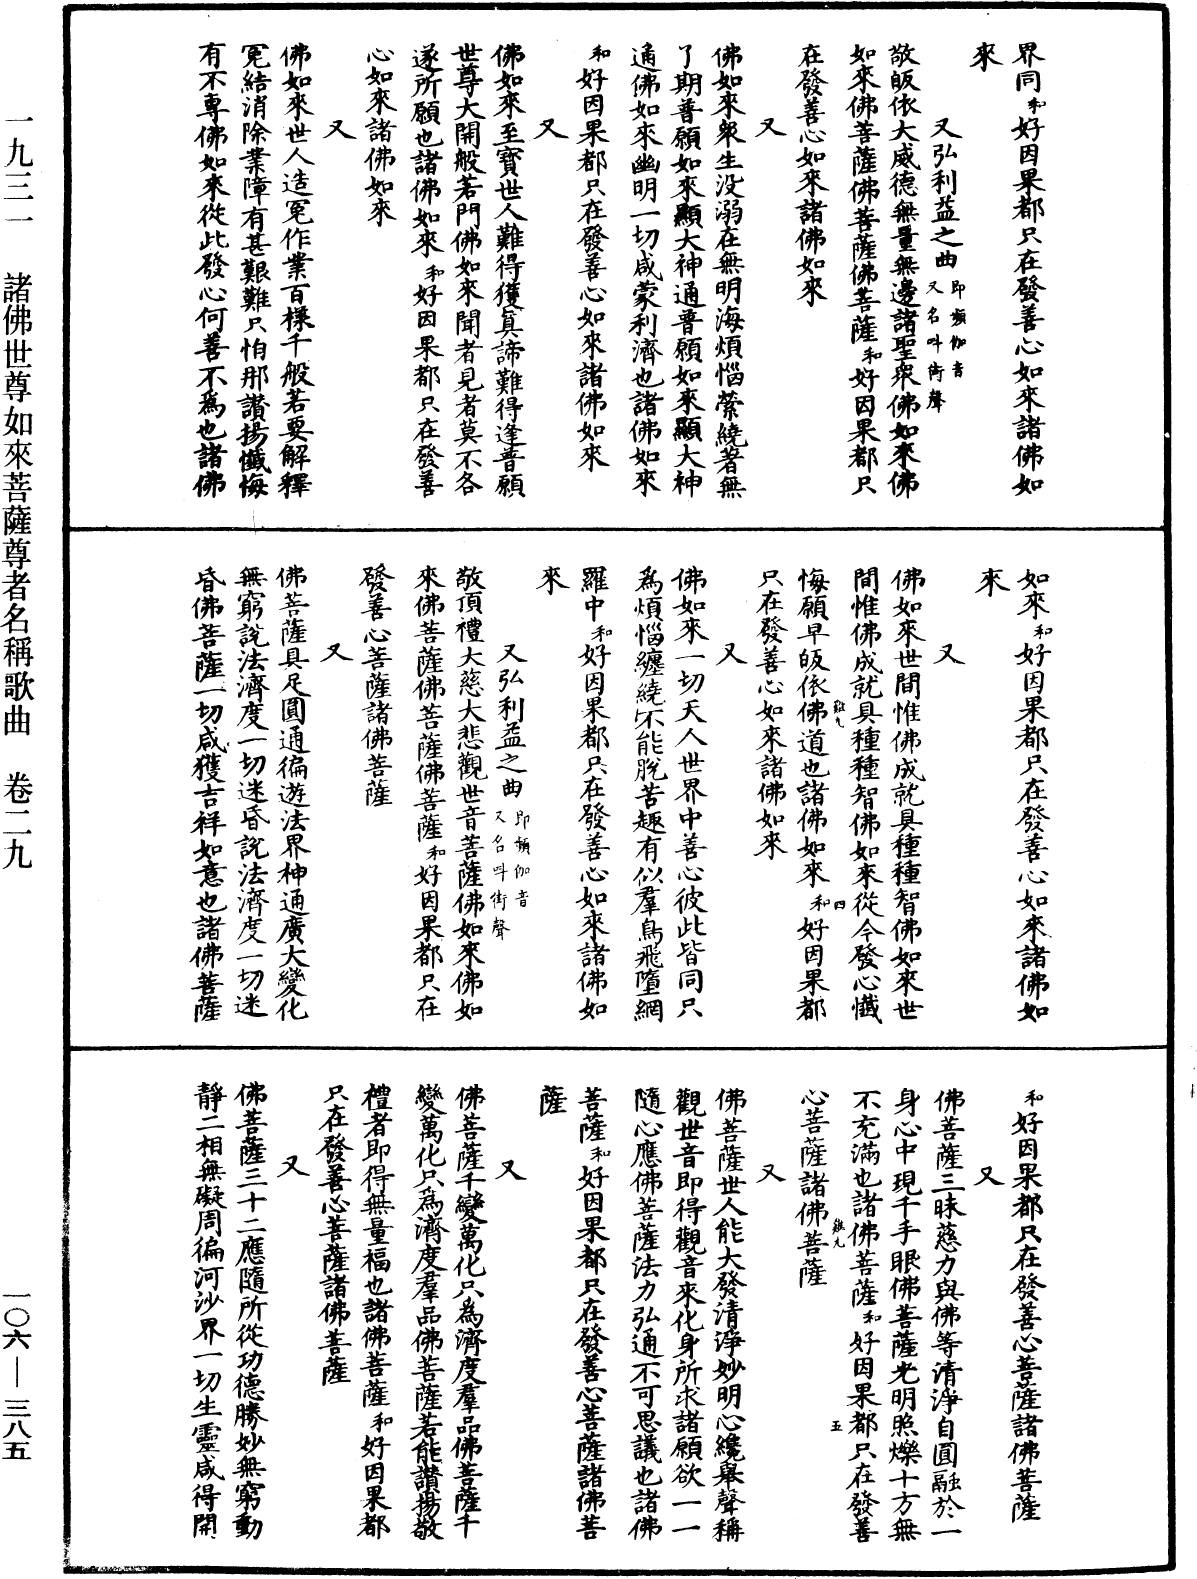 界同和好因果都只在發善心如來諸佛如
來
又弘利益之曲即頻伽音又名呌街聲
敬皈依大威德無量無邊諸聖衆佛如來佛
如來佛菩薩佛菩薩佛菩薩和好因果都只
在發善心如來諸佛如來
又
佛如來衆生没溺在無明海煩惱縈繞著無
了期普願如來顯大神通普願如來顯大神
通佛如來幽明一切咸蒙利濟也諸佛如來
和好因果都只在發善心如來諸佛如來
又
佛如來至寶世人難得獲真諦難得逢普願
世尊大開般若門佛如來聞者見者莫不各
遂所願也諸佛如來和好因果都只在發善
心如來諸佛如來
又
佛如來世人造冤作業百樣千般若要解釋
冤結消除業障有甚艱難只怕那讚揚懺悔
有不專佛如來從此發心何善不爲也諸佛
如來和好因果都只在發善心如來諸佛如
來
又
佛如來世間惟佛成就具種種智佛如來世
間惟佛成就具種種智佛如來從今發心懺
悔願早皈依佛道也諸佛如來和好因果都
難九
四
只在發善心如來諸佛如來
又
佛如來一切天人世界中善心彼此皆同只
爲煩惱纏繞不能脫苦趣有似羣鳥飛墮網
羅中和好因果都只在發善心如來諸佛如
來
又弘利益之曲即頻伽音又名呌街聲
敬頂禮大慈大悲觀世音菩薩佛如來佛如
來佛菩薩佛菩薩佛菩薩和好因果都只在
發善心菩薩諸佛菩薩
又
佛菩薩具足圓通徧遊法界神通廣大變化
無窮說法濟度一切迷昏說法濟度一切迷
昏佛菩薩一切咸獲吉祥如意也諸佛菩薩
和好因果都只在發善心菩薩諸佛菩薩
又
佛菩薩三昧慈力與佛等清淨自圓融於一
身心中現千手眼佛菩薩光明照爍十方無
不充滿也諸佛菩薩和好因果都只在發善
難九
五
心菩薩諸佛菩薩
又
佛菩薩世人能大發清淨妙明心纔舉聲稱
觀世音即得觀音來化身所求諸願欲一一
隨心應佛菩薩法力弘通不可思議也諸佛
菩薩和好因果都只在發善心菩薩諸佛菩
薩
又
佛菩薩千變萬化只為濟度羣品佛菩薩千
變萬化只爲濟度羣品佛菩薩若能讚揚敬
禮者即得無量福也諸佛菩薩和好因果都
只在發善心菩薩諸佛菩薩
又
佛菩薩三十二應隨所從功德勝妙無窮動
靜二相無礙周徧河沙界一切生靈咸得開
一九三一　諸佛世尊如來菩薩尊者名稱歌曲　卷二九
一〇六—三八五